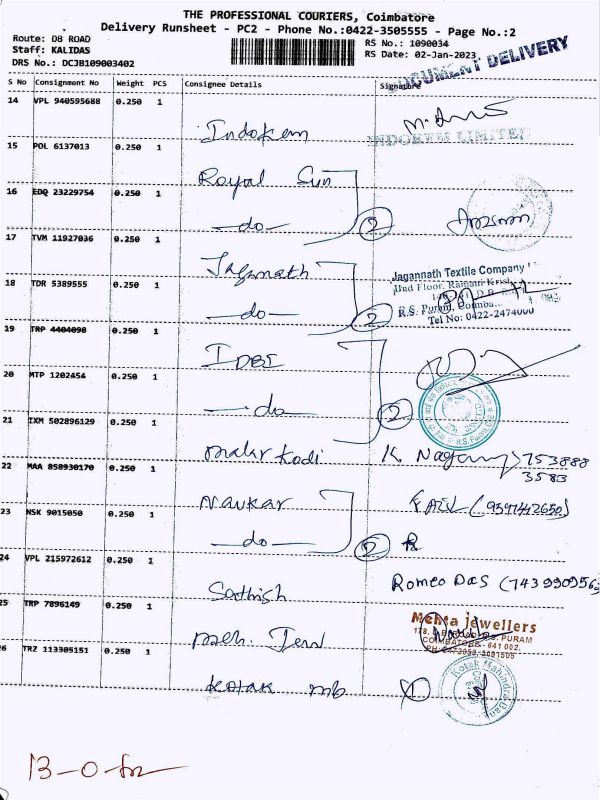 THE PROFESSIONAL COURIERS, Coimbatore
Delivery Runsheet - PC2 - Phone No.:0422-3505555 - Page No.:2
Route: DB ROAD
Staff: KALIDAS
DRS No.: DCJB109003402
RS No.: 1090034
RS Date: 02-Jan-2023
DOCUMENT DELIVERY
S No Consignment No Weight PCS Consignee Details Signature
14 VPL 940595688 0.250 1
Indokem
INDOKEM LIMITED
15 POL 6137013 0.250 1
Royal Sun
16 EDQ 23229754 0.250 1
-do- 2
17 TVM 11927036 0.250 1
Jaganath
Jagannath Textile Company
IInd Floor,
18 TDR 5389555 0.250 1
-do- 2
R.S. Puram, Coimba
Tel No: 0422-2474000
19 TRP 4404098 0.250 1
IDBI
20 MTP 1202454 0.250 1
-do- 2
21 IXM 502896129 0.250 1
malar kodi K. 753888
3583
22 MAA 858930170 0.250 1
Navkar
23 NSK 9015050 0.250 1
-do- 2
24 VPL 215972612 0.250 1
Sathish Romeo Das (743990956
25 TRP 7896149 0.250 1
meh. Jew
Mehta Jewellers
R.S. PURAM
COIMBATORE - 641 002.
26 TRZ 113305151 0.250 1
Kotak mb
Kotak Mahindra Bank
13-0-